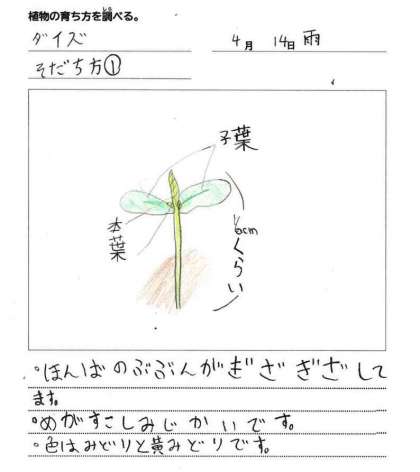 植物の育ち方を調べる。
ダイズ
4月 14日 雨
そだち方①
子葉
本葉
6cmくらい
・ほんばのぶぶんがぎざぎざして
ます。
・めがすこしみじかいです。
・色はみどりと黄みどりです。